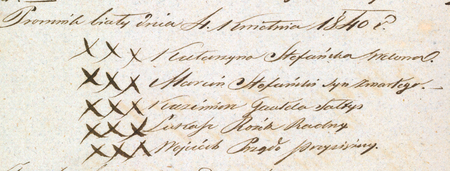 Promnik biały dnia 4. Kwietnia 1840 r.
XXX Katarzyna Stefańska wdowa.
XXX Marcin Stefański syn zmarłego.
XXX Kazimierz Gawęda Sołtys
XXX Łukasz Rożek Radny
XXX Wojciech przysiężny.